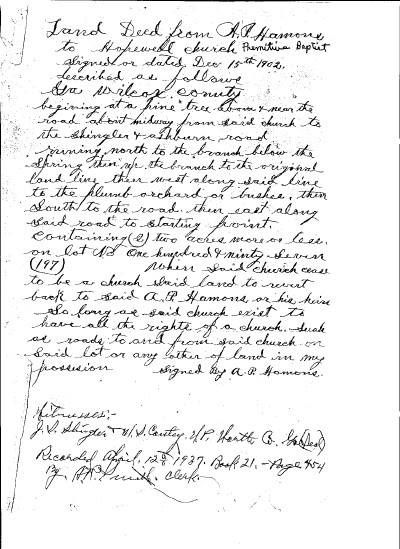 Land Deed from A. P. Hamons
to Hopewell church Premitive Baptist
signed or dated Dec 15th 1902.
described as follows
Ga Wilcox county
begining at a pine tree above & near the
road about midway from said church to
the Shingler & ashburn road
running north to the branch below the
Spring then up the branch to the original
land line then west along said line
to the plumb orchard or bushes, then
South to the road then east along
said road to starting point.
Containing (2) two acres more or less.
on lot No One hundred & ninty Seven
(197) When said church cease
to be a church said land to revert
back to said A. P. Hamons or his heirs
So long as said church exist to
have all the rights of a church. Such
as roads to and from said church on
Said lot or any other of land in my
possesion Signed By A. P. Hamons.
Witnesses:-
J. S. Shingler
Recorded April. 12th 1937. Book 21. - Page 454
By Smith. Clerk.